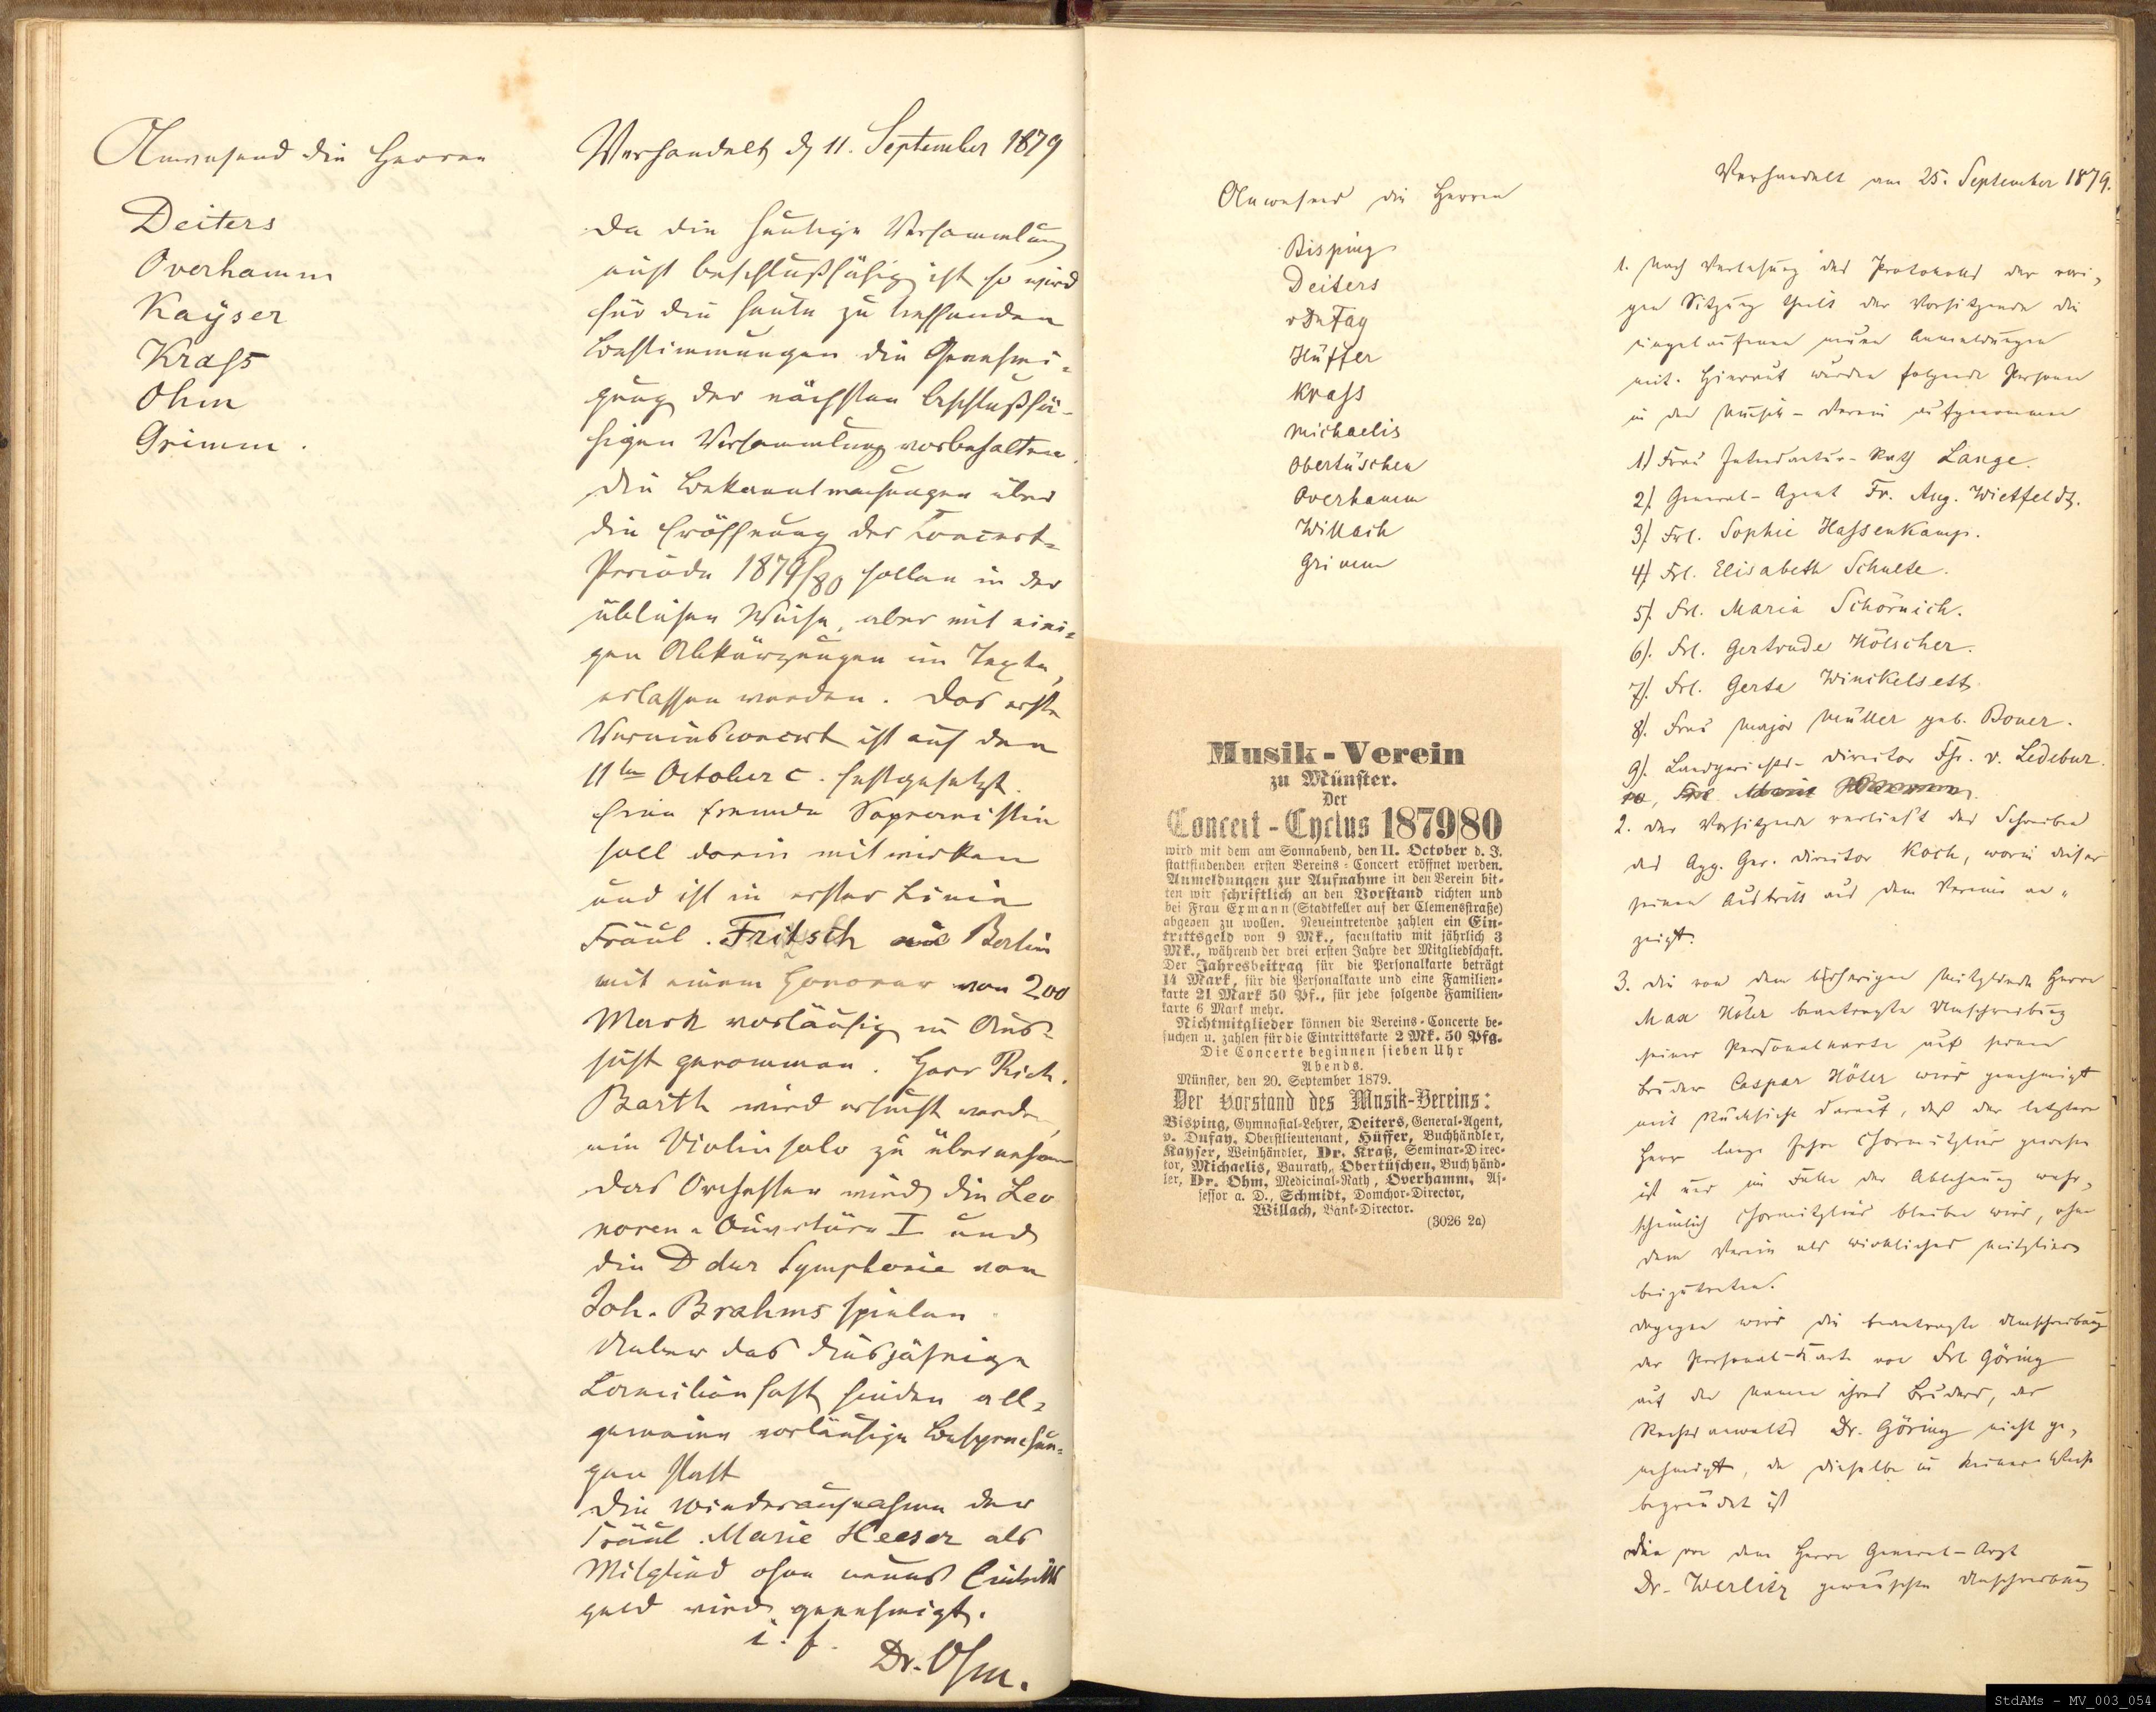 Anwesend die Herren
Deiters
Overhamm
Kayser
Krass
Ohm
Grimm.
Verhandelt d. 11. September 1879
Da die heutige Versammlung
nicht beschlußfähig ist so wird
für die heute zu treffenden
Bestimmungen die Genehmi-
gung der nächsten beschlußfä-
higen Versammlung vorbehalten.
Die Bekanntmachungen über
die Eröffnung der Concert-
Periode 1879/80 sollen in der
üblichen Weise, aber mit eini-
gen Abkürzungen im Texte,
erlassen werden. Das erste
Vereinsconcert ist auf den
11ten October c. festgesetzt.
Eine fremde Sopranistin
soll darin mitwirken
und ist in erster Linie
Fräul. Fritsch aus Berlin
mit einem Honorar von 200
Mark vorläufig in Aus-
sicht genommen. Herr Rich.
Barth wird ersucht werden,
ein Violinsolo zu übernehmen
Das Orchester wird die Leo
noren-Ouvertüre I und
die D dur Symphonie von
Joh. Brahms spielen
Ueber das diesjährige
Caecilienfest finden all-
gemeine vorläufige Besprechun-
gen statt
Die Wiederaufnahme der
Fräul. Marie Heeser als
Mitglied ohne neues Eintritts
geld wird genehmigt.
i. f.
Dr. Ohm.
Anwesend die Herren
Bisping
Deiters
v Du Fay
Hüffer
Krass
Michaelis
Obertüschen
Overhamm
Willach
Grimm
Musik-Verein
zu Münster.
Der
Concert-Cyclus 1879/80
wird mit dem am Sonnabend, den 11. October d. J.
stattfindenden ersten Vereins-Concert eröffnet werden.
Anmeldungen zur Aufnahme in den Verein bit-
ten wir schriftlich an den Vorstand richten und
bei Frau Exmann (Stadtkeller auf der Clemensstraße)
abgeben zu wollen. Neueintretende zahlen ein Ein-
trittsgeld von 9 Mk., facultativ mit jährlich 3
Mk., während der drei ersten Jahre der Mitgliedschaft.
Der Jahresbeitrag für die Personalkarte beträgt
14 Mark, für die Personalkarte und eine Familien-
karte 21 Mark 50 Pf., für jede folgende Familien-
karte 6 Mark mehr.
Nichtmitglieder können die Vereins-Concerte be-
suchen u. zahlen für die Eintrittskarte 2 Mk. 50 Pfg.
Die Concerte beginnen sieben Uhr
Abends.
Münster, den 20. September 1879.
Der Vorstand des Musik-Vereins:
Bisping, Gymnasial-Lehrer, Deiters, General-Agent,
v. Dufay, Oberstlieutenant, Hüffer, Buchhändler,
Kayser, Weinhändler, Dr. Kraß, Seminar-Direc-
tor, Michaelis, Baurath, Obertüschen, Buchhänd-
ler, Dr. Ohm, Medicinal-Rath, Overhamm, As-
sessor a. D., Schmidt, Domchor-Director,
Willach, Bank-Director.
(3026 2a)
Verhandelt am 25. September 1879.
1. Nach Verlesung des Protokolls der vori-
gen Sitzung theilt der Vorsitzende die
eingelaufenen neuen Anmeldungen
mit. Hierauf wurden folgende Personen
in den Musik-Verein aufgenommen
1) Frau Intendantur-Rath Lange.
2). General-Agent Fr. Aug. Wietfeldt.
3). Frl. Sophie Hassenkamp.
4) Frl. Elisabeth Schulte.
5). Frl. Maria Schörnich.
6). Frl. Gertrude Hölscher.
7). Frl. Gerta Winkelsett.
8). Frau Major Müller geb. Boner.
9). Landgerichts-Director Fhr. v. Ledebur.
2. Der Vorsitzende verliest das Schreiben
des App. Ger. Director Koch, worin dieser
seinen Austritt aus dem Verein an-
zeigt.
3. Die von dem bisherigen Mitgliede Herrn
Max Höter beantragte Umschreibung
seiner Personalkarte auf seinen
Bruder Caspar Höter wird genehmigt
mit Rücksicht darauf, daß der letztere
Herr lange Jahre Chormitglied gewesen
ist und im Falle der Ablehnung wahr-
scheinlich Chormitglied bleiben wird, ohne
dem Verein als wirkliches Mitglied
beizutreten.
Dagegen wird die beantragte Umschreibung
der Personal-Karte von Frl Göring
auf den Namen ihres Bruders, des
Rechtsanwalts Dr. Göring nicht ge-
nehmigt, da dieselbe in keiner Weise
begründet ist
Die von dem Herrn General-Arzt
Dr. Werlitz gewünschte Umschreibung
StdAMs - MV_003_054